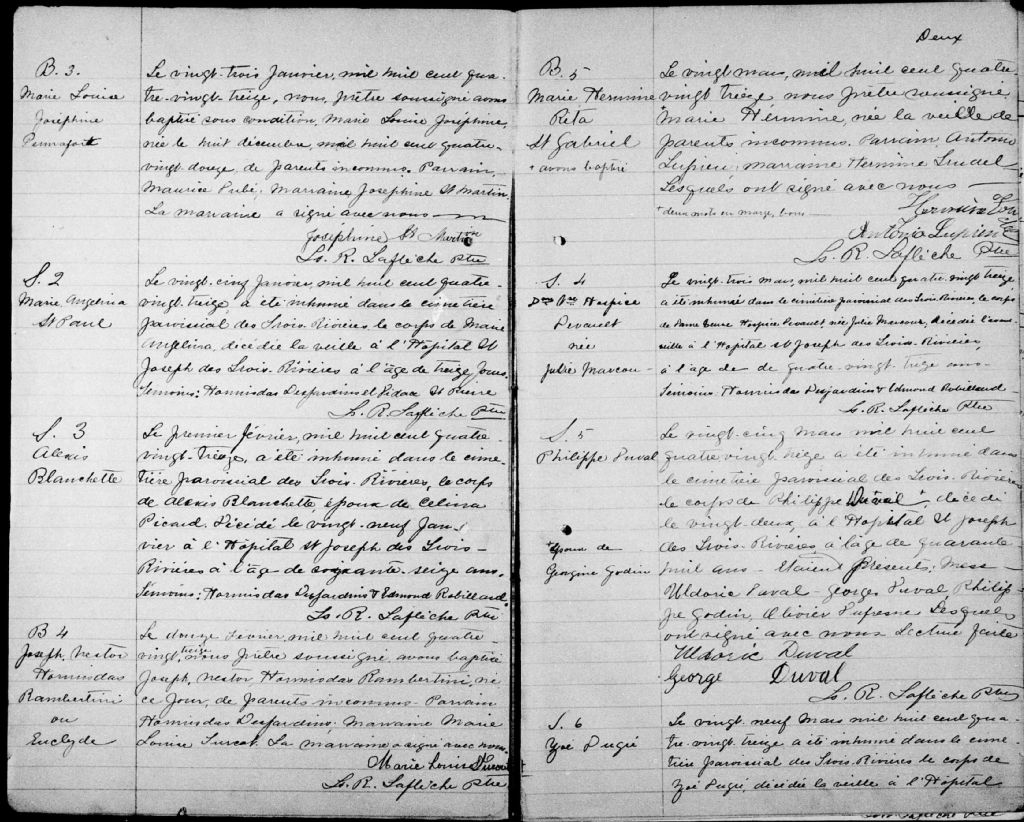 B. 3.
Marie Louise
Josephine
Pennafort
Le vingt-trois Janvier, mil huit cent qua-
tre-vingt-treize, nous, prêtre soussigné avons
baptisé sous condition, Marie Louise Joséphine,
née le huit décembre, mil huit cent quatre-
vingt-douze, de parents inconnus. Parrain,
Maurice Dubé; Marraine Josephine St Martin,
La marraine a signé avec nous —
Josephine St Martin
Ls. R. Laflèche Ptre
S. 2
Marie Angelina
St Paul
Le vingt-cinq Janvier, mil huit cent quatre-
vingt-treize, a été inhumé dans le cimetière
paroissial des Trois-Rivières, le corps de Marie
Angelina, décédée la veille à l'Hôpital St
Joseph des Trois-Rivières à l'âge de treize jours.
Témoins: Hormisdas Desjardins et Pierre
Ls. R. Laflèche Ptre
S. 3
Alexis
Blanchette
Le premier février, mil huit cent quatre-
vingt-treize, a été inhumé dans le cime-
tière paroissial des Trois-Rivières, le corps
de Alexis Blanchette, époux de Celina
Picard. Décédé le vingt-neuf Jan-
vier à l'Hôpital St Joseph des Trois-
Rivières à l'âge de soixante-seize ans.
Témoins: Hormisdas Desjardins & Edmond Robillard.
Ls. R. Laflèche Ptre
B 4
Joseph, Nestor
Hormisdas
Rambertini
ou
Euclyde
Le douze Février, mil huit cent quatre-
vingt, treize nous prêtre soussigné, avons baptisé
Joseph, nestor Hormisdas Rambertini, né
ce jour, de parents inconnus. Parrain
Hormisdas Desjardins, Marraine Marie
Louise Turcot. La marraine a signé avec nous.
Marie Louise Turcot
Ls. R. Laflèche Ptre
Deux
B. 5
Marie Hermine
Reta
St Gabriel
+ avons baptisé
Le vingt mars, mil huit cent quatre
vingt treize, nous prêtre soussigné
Marie Hermine, née la veille de
parents inconnus. Parrain Antonio
Lupien; marraine Hermine Trudel
Lesquels ont signé avec nous —
+ deux mots en marge, bons —
Hermine
Antonio Lupien
Ls. R. Laflèche Ptre
S. 4
Dme Vve Hospice
Devault
née
Julie Marcou
Le vingt-trois mars, mil huit cent quatre-vingt treize
a été inhumé dans le cimetière paroissial des Trois-Rivières, le corps
de Dame Veuve Hospice Devault née Julie Marcou, décédée l'avant
veille à l'Hopital St Joseph des Trois-Rivières,
à l'âge de de quatre-vingt-treize ans—
Témoins. Hormisdas Desjardins & Edmond Robillard—
Ls. R. Laflèche Ptre
S. 5
Philippe Duval
+ époux de
Georgine Godin
Le vingt-cinq mars mil huit cent
quatre vingt treize a été inhumé dans
le cimetière paroissial des Trois-Rivières
le corps de Philippe Duval +, décédé
le vingt-deux, à l'Hôpital St Joseph
des Trois-Rivières à l'âge de quarante
huit ans — Etaient présents: Mess —
Uldoric Duval — Georges Duval Philip-
pe Godin, Olivier Dufresne Lesquels
ont signé avec nous Lecture faite
Uldoric Duval
George Duval
Ls. R. Laflèche Ptre
S. 6
Zoé Dugré
Le vingt-neuf Mars mil huit cent qua-
tre-vingt-treize a été inhumé dans le cime-
tière paroissial des Trois-Rivières le corps de
Zoé Dugré, décédée la veille à l'Hôpital